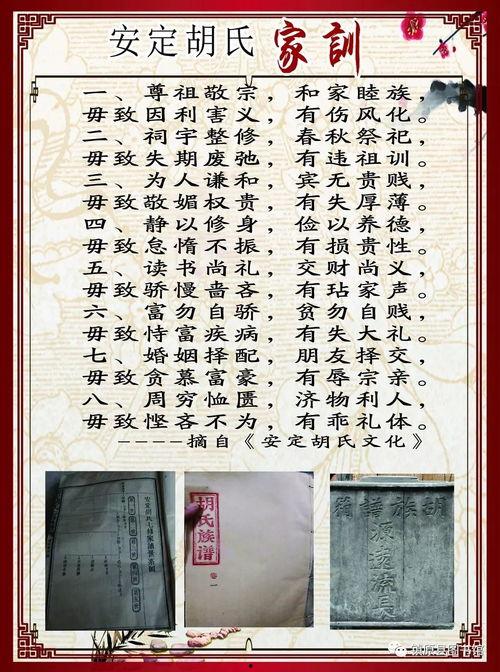 安定胡氏 家訓
一、尊祖敬宗，和家睦族，
毋致因利害义，有伤风化。
二、祠宇整修，春秋祭祀，
毋致失期废弛，有违祖训。
三、为人谦和，宾无贵贱，
毋致敬媚权贵，有失厚薄。
四、静以修身，俭以养德，
毋致怠惰不振，有损贵性。
五、读书尚礼，交财尚义，
毋致骄慢啬吝，有玷家声。
六、富勿自骄，贫勿自贱，
毋致恃富疾病，有失大礼。
七、婚姻择配，朋友择交，
毋致贪慕富豪，有辱宗亲。
八、周穷恤匮，济物利人，
毋致悭吝不为，有乖礼体。
----摘自《安定胡氏文化》
胡氏族谱
卷一
箱譜族胡
源遠流長